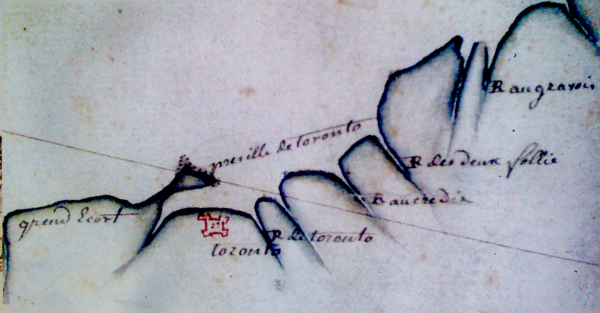 R au gravois
presille de toronto
R des deux follie
R au credit
grand Ecort
R de toronto
toronto